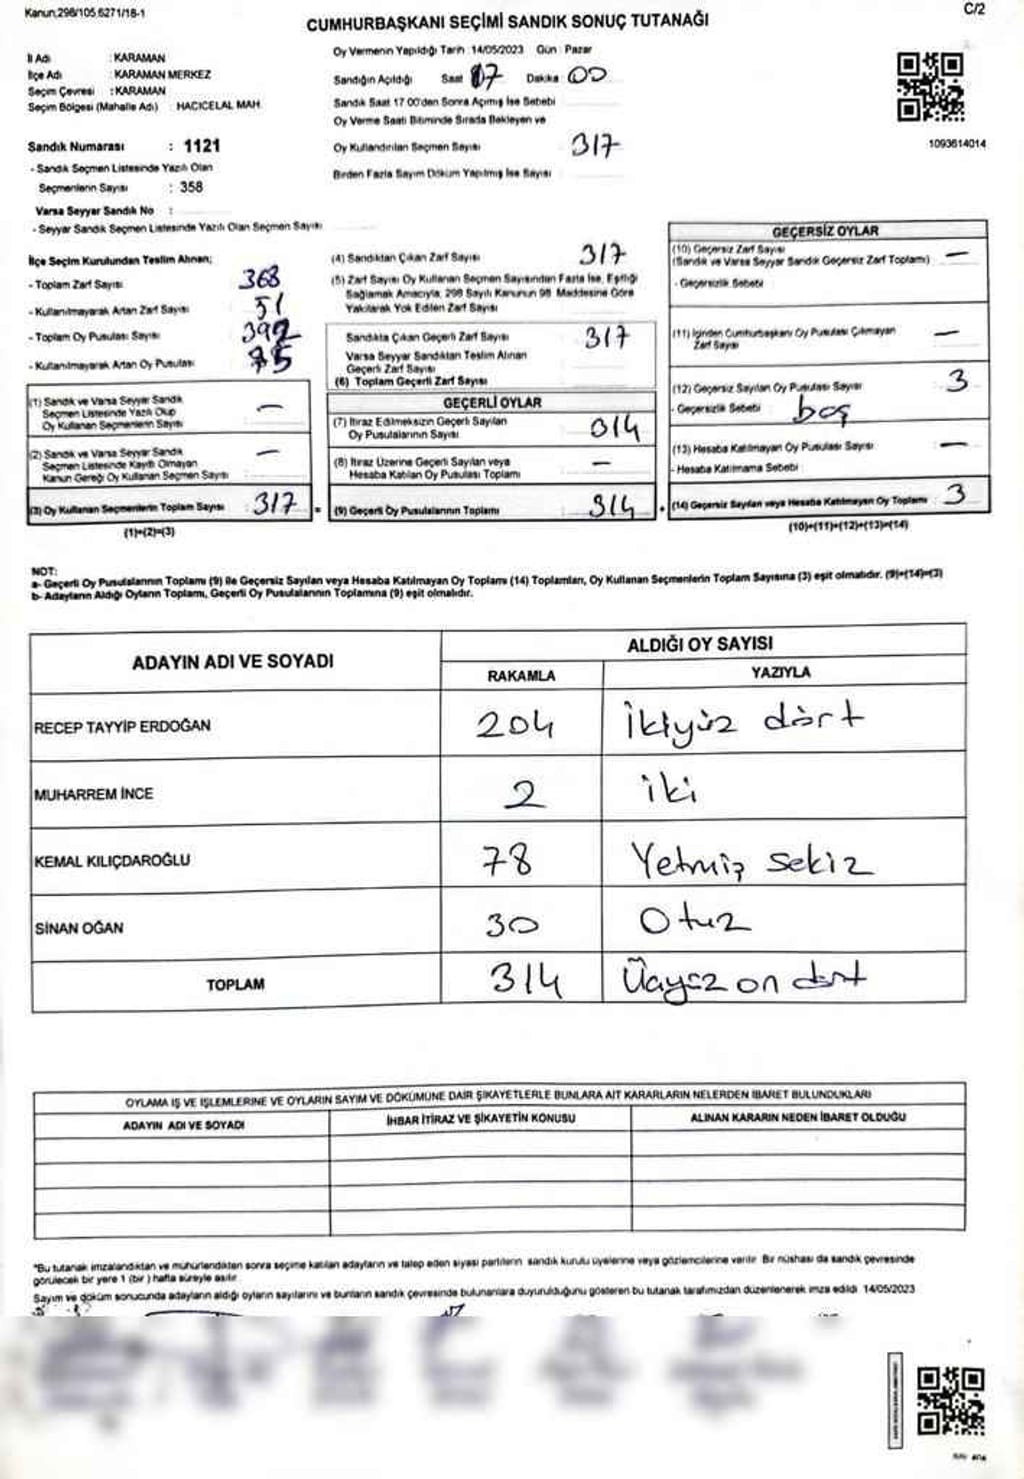 Kanun:298/105,6271/18-1
C/2
CUMHURBAŞKANI SEÇİMİ SANDIK SONUÇ TUTANAĞI
İl Adı : KARAMAN
İlçe Adı : KARAMAN MERKEZ
Seçim Çevresi : KARAMAN
Seçim Bölgesi (Mahalle Adı) : HACICELAL MAH.
Oy Vermenin Yapıldığı Tarih :14/05/2023 Gün : Pazar
Sandığın Açıldığı Saat 17 Dakika 00
Sandık Saat 17.00'den Sonra Açılmış İse Sebebi
Oy Verme Saati Bitiminde Sırada Bekleyen ve
Oy Kullandırılan Seçmen Sayısı 317
Birden Fazla Sayım Döküm Yapılmış İse Sayısı
1093614014
Sandık Numarası : 1121
- Sandık Seçmen Listesinde Yazılı Olan
Seçmenlerin Sayısı : 358
Varsa Seyyar Sandık No :
- Seyyar Sandık Seçmen Listesinde Yazılı Olan Seçmen Sayısı
İlçe Seçim Kurulundan Teslim Alınan;
- Toplam Zarf Sayısı 368
- Kullanılmayarak Artan Zarf Sayısı 51
- Toplam Oy Pusulası Sayısı 392
- Kullanılmayarak Artan Oy Pusulası 75
(1) Sandık ve Varsa Seyyar Sandık
Seçmen Listesinde Yazılı Olup
Oy Kullanan Seçmenlerin Sayısı —
(2) Sandık ve Varsa Seyyar Sandık
Seçmen Listesinde Kayıtlı Olmayan
Kanun Gereği Oy Kullanan Seçmen Sayısı —
(3) Oy Kullanan Seçmenlerin Toplam Sayısı 317
(1)+(2)=(3)
(4) Sandıktan Çıkan Zarf Sayısı 317
(5) Zarf Sayısı Oy Kullanan Seçmen Sayısından Fazla İse, Eşitliği
Sağlamak Amacıyla, 298 Sayılı Kanunun 98. Maddesine Göre
Yakılarak Yok Edilen Zarf Sayısı
Sandıkta Çıkan Geçerli Zarf Sayısı 317
Varsa Seyyar Sandıktan Teslim Alınan
Geçerli Zarf Sayısı
(6) Toplam Geçerli Zarf Sayısı
GEÇERLİ OYLAR
(7) İtiraz Edilmeksizin Geçerli Sayılan
Oy Pusulalarının Sayısı 314
(8) İtiraz Üzerine Geçerli Sayılan veya
Hesaba Katılan Oy Pusulası Toplamı —
(9) Geçerli Oy Pusulalarının Toplamı 314
GEÇERSİZ OYLAR
(10) Geçersiz Zarf Sayısı
(Sandık ve Varsa Seyyar Sandık Geçersiz Zarf Toplamı) —
- Geçersizlik Sebebi
(11) İçinden Cumhurbaşkanı Oy Pusulası Çıkmayan
Zarf Sayısı —
(12) Geçersiz Sayılan Oy Pusulası Sayısı 3
- Geçersizlik Sebebi boş
(13) Hesaba Katılmayan Oy Pusulası Sayısı —
- Hesaba Katılmama Sebebi
(14) Geçersiz Sayılan veya Hesaba Katılmayan Oy Toplamı 3
(10)+(11)+(12)+(13)=(14)
NOT:
a- Geçerli Oy Pusulalarının Toplamı (9) ile Geçersiz Sayılan veya Hesaba Katılmayan Oy Toplamı (14) Toplamları, Oy Kullanan Seçmenlerin Toplam Sayısına (3) eşit olmalıdır. (9)+(14)=(3)
b- Adayların Aldığı Oyların Toplamı, Geçerli Oy Pusulalarının Toplamına (9) eşit olmalıdır.
ADAYIN ADI VE SOYADI
ALDIĞI OY SAYISI
RAKAMLA YAZIYLA
RECEP TAYYİP ERDOĞAN 204 İkiyüz dört
MUHARREM İNCE 2 iki
KEMAL KILIÇDAROĞLU 78 Yetmiş sekiz
SİNAN OĞAN 30 Otuz
TOPLAM 314 Üçyüz on dört
OYLAMA İŞ VE İŞLEMLERİNE VE OYLARIN SAYIM VE DÖKÜMÜNE DAİR ŞİKAYETLERLE BUNLARA AİT KARARLARIN NELERDEN İBARET BULUNDUKLARI
ADAYIN ADI VE SOYADI İHBAR İTİRAZ VE ŞİKAYETİN KONUSU ALINAN KARARIN NEDEN İBARET OLDUĞU
*Bu tutanak imzalandıktan ve mühürlendikten sonra seçime katılan adayların ve talep eden siyasi partilerin sandık kurulu üyelerine veya gözlemcilerine verilir. Bir nüshası da sandık çevresinde
görülecek bir yere 1 (bir) hafta süreyle asılır.
Sayım ve döküm sonucunda adayların aldığı oyların sayılarını ve bunların sandık çevresinde bulunanlara duyurulduğunu gösteren bu tutanak tarafımızdan düzenlenerek imza edildi. 14/05/2023